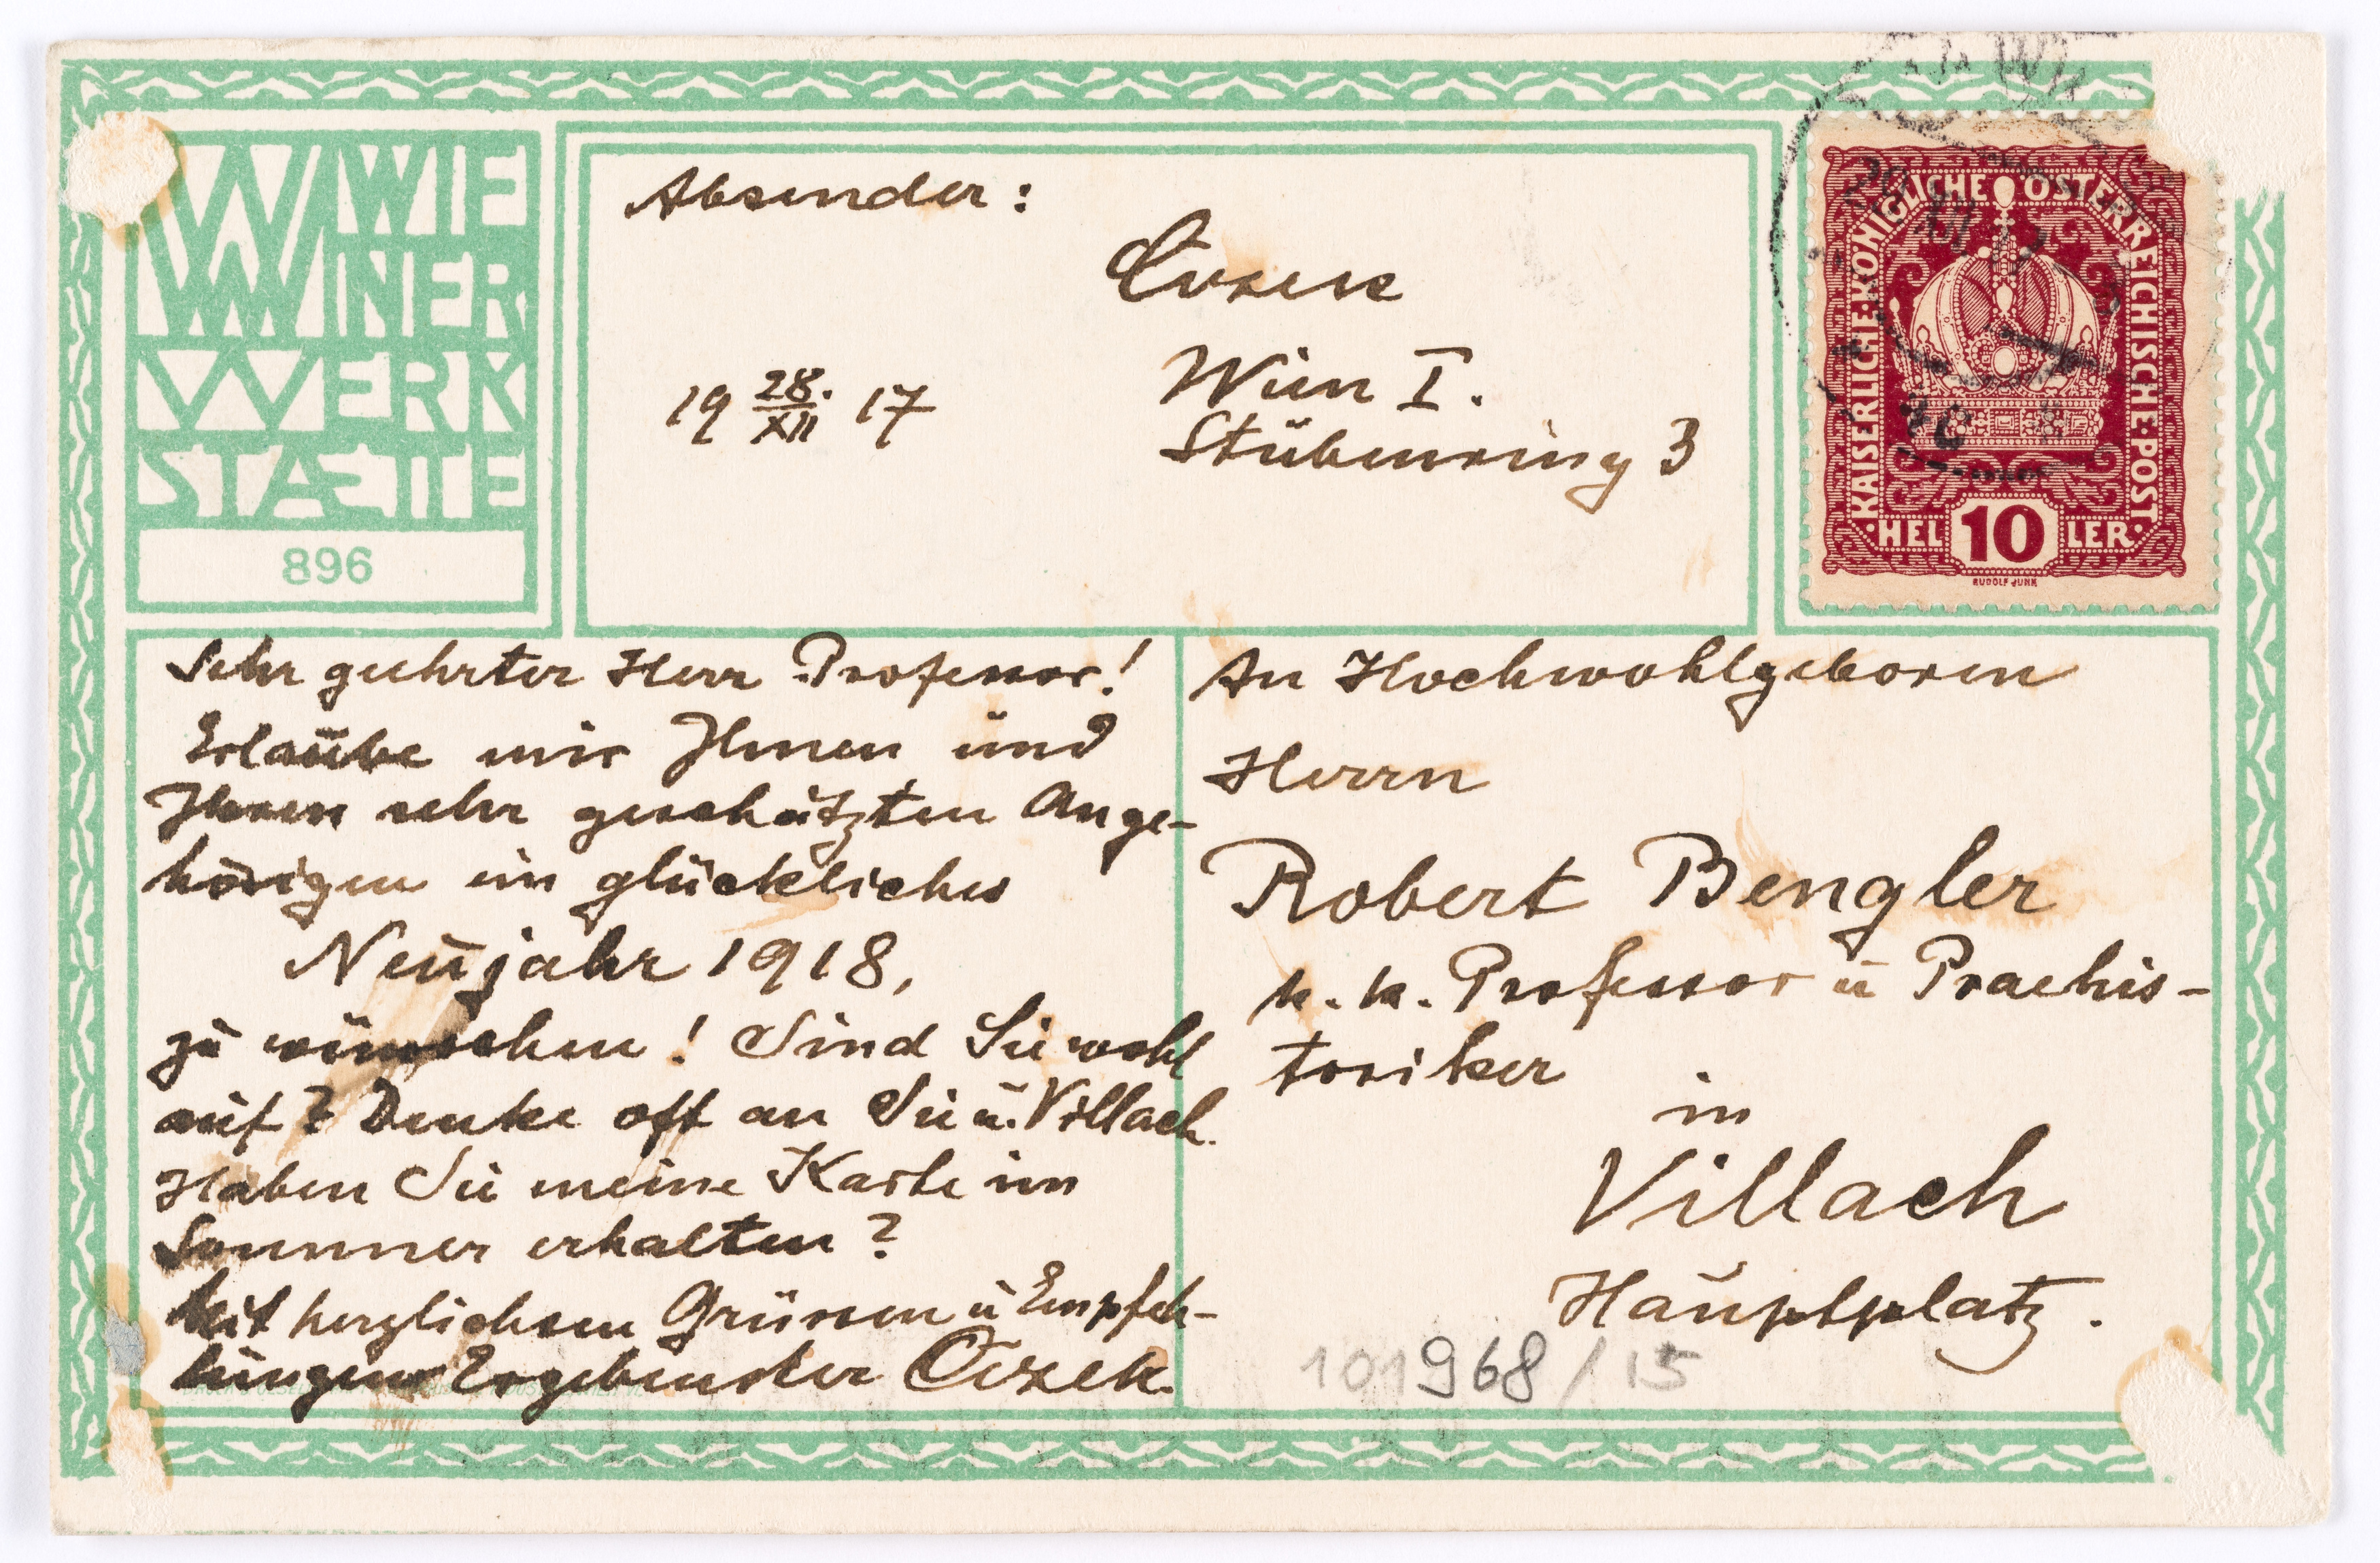 WIE
NER
WERK
STÆTTE
896
Absender:
Wien I.
Stubenring 3
19 28./XII 17
KAISERLICHE·KÖNIGLICHE·ÖSTERREICHISCHE·POST·
HEL 10 LER
RUDOLF JUNK
29 XII 17
Sehr geehrter Herr Professor!
Erlaube mir Ihnen und
Ihren sehr geschätzten Ange-
hörigen ein glückliches
Neujahr 1918,
zu wünschen! Sind Sie wohl
auf? Denke oft an Sie u. Villach.
Haben Sie meine Karte im
Sommer erhalten?
Mit herzlichsten Grüssen u Empfeh-
lungen Ergebenster
An Hochwohlgeboren
Herrn
Robert Bengler
k. k. Professor u Praehis-
toriker
in
Villach
Hauptplatz.
101968/15